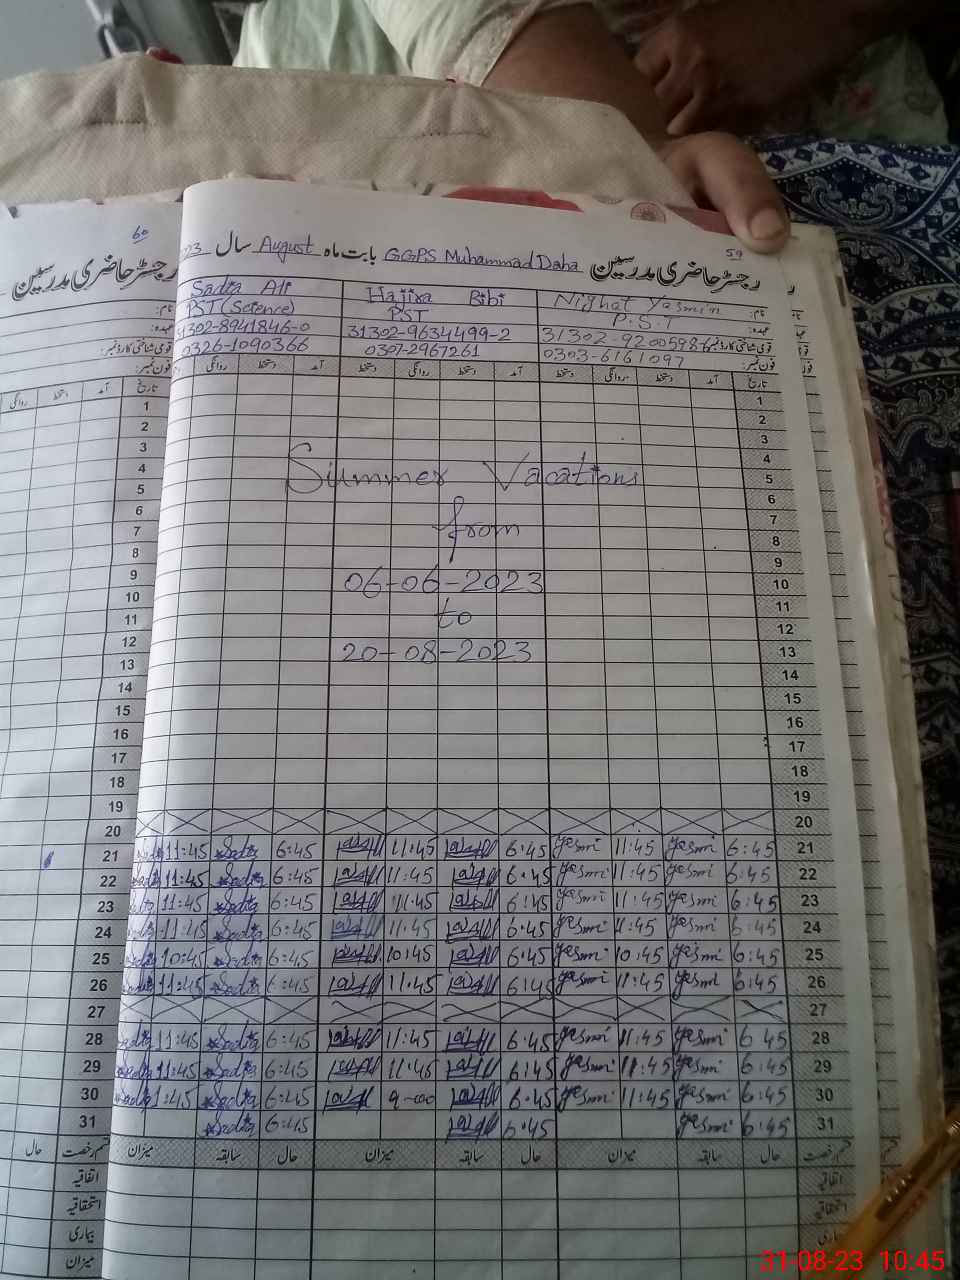 60
رجسٹر حاضری مدرسین
59
رجسٹر حاضری مدرسین GGPS Muhammad Daha بابت ماہ August سال
نام: Nighat Yasmin Hajira Bibi Sadia Ali
عہدہ: P.S.T PST PST (Science)
قومی شناختی کارڈ نمبر: 31302-9634499-2 31302-8941846-0
فون نمبر: 0303-6161097 0307-2967261 0326-1090366
تاریخ آمد دستخط روانگی دستخط آمد دستخط روانگی دستخط آمد دستخط روانگی
1
2
3
4
5
6
7
8
9
10
11
12
13
14
15
16
17
18
19
20
Summer Vacations
from
06-06-2023
to
20-08-2023
21 6:45 Yasmi 11:45 Yasmi 6:45 11:45 6:45 Sadia 11:45
22 6:45 Yasmi 11:45 Yasmi 6:45 11:45 6:45 Sadia 11:45
23 6:45 Yasmi 11:45 Yasmi 6:45 11:45 6:45 Sadia 11:45
24 6:45 Yasmi 11:45 Yasmi 6:45 11:45 6:45 Sadia 11:45
25 6:45 Yasmi 10:45 Yasmi 6:45 10:45 6:45 Sadia 10:45
26 6:45 Yasmi 11:45 Yasmi 6:45 11:45 6:45 Sadia 11:45
27
28 6:45 Yasmi 11:45 Yasmi 6:45 11:45 6:45 Sadia 11:45
29 6:45 Yasmi 11:45 Yasmi 6:45 11:45 6:45 Sadia 11:45
30 6:45 Yasmi 11:45 Yasmi 6:45 9-00 6:45 Sadia 1:45
31 6:45 Yasmi 6:45 6:45 Sadia
قسم رخصت حال سابقہ میزان حال سابقہ میزان حال سابقہ میزان
اتفاقیہ
استحقاقیہ
بیماری
میزان
31-08-23 10:45